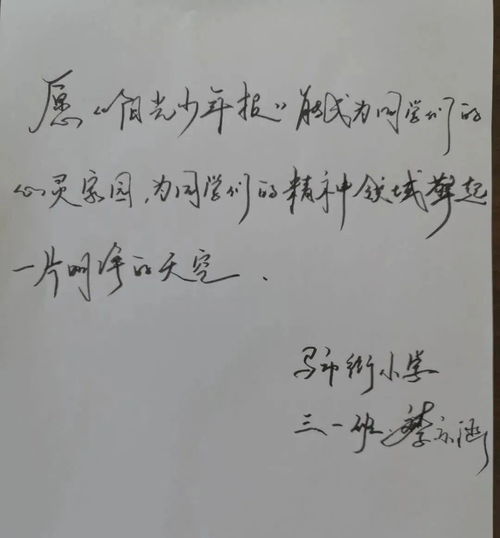 愿《阳光少年报》能成为同学们的
心灵家园,为同学们的精神领域擎起
一片明净的天空.
马市街小学
三一班